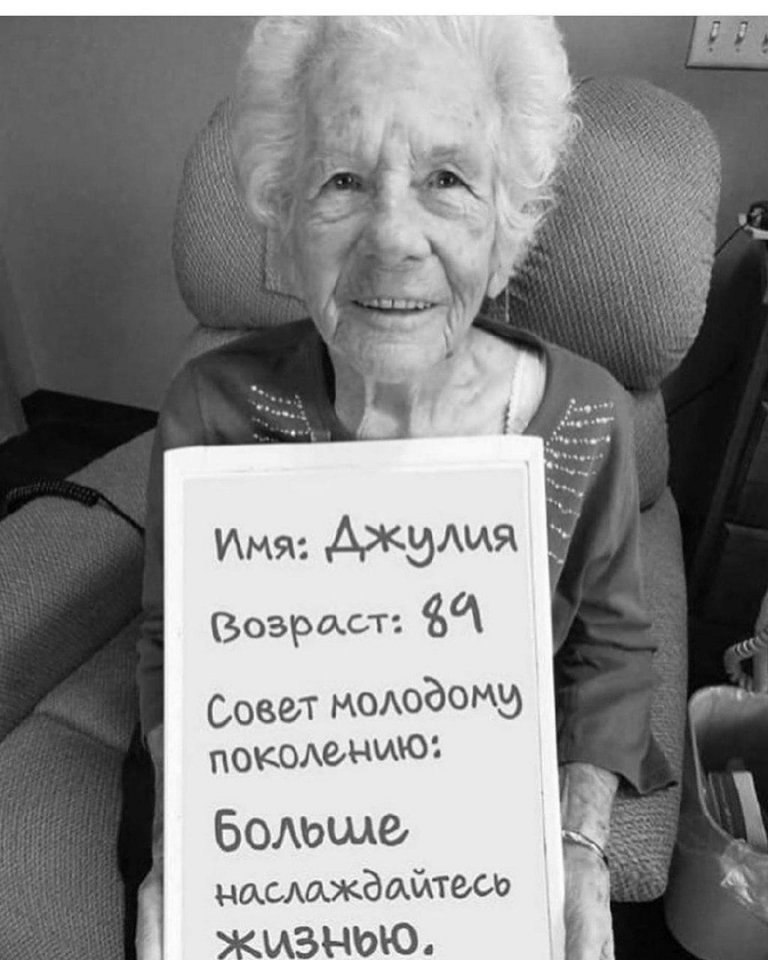 Имя: Джулия
Возраст: 89
Совет молодому
поколению:
Больше
наслаждайтесь
жизнью.